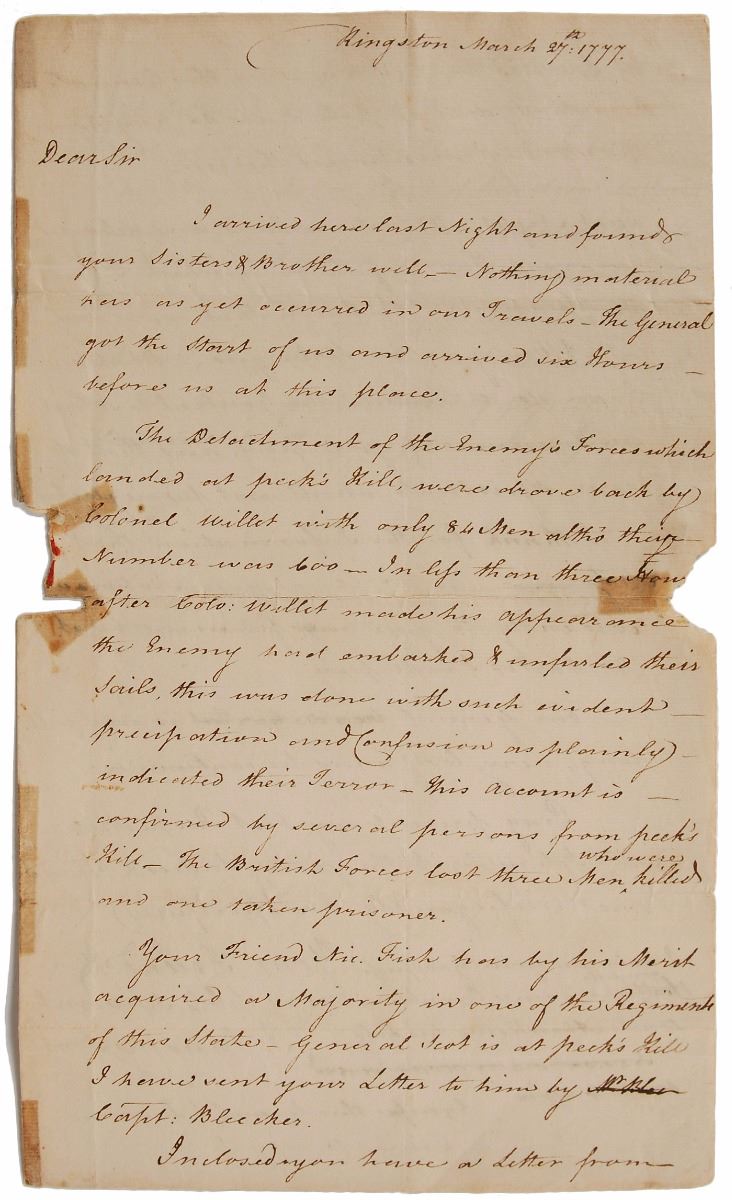 Kingston March 27th: 1777.
Dear Sir
I arrived here last Night and found
your Sisters & Brother well — Nothing material
has as yet occurred in our Travels — The General
got the Start of us and arrived six Hours —
before us at this place.
The Detachment of the Enemy's Forces which
landed at peek's Kill, were drove back by
Colonel Willet with only 84 Men altho their
Number was 600 — In less than three Hour
after Colo: Willet made his appearance
the Enemy had embarked & unfurled their
Sails, this was done with such evident —
precipation and Confusion as plainly —
indicated their Terror — this Account is —
confirmed by several persons from peek's
Kill — The British Forces lost three Men ^who were killed
and one taken prisoner.
Your Friend Nic. Fish has by his Merit
acquired a Majority in one of the Regiments
of this State — General Scot is at peek's Kill
I have sent your Letter to him by Mr. Blee
Capt: Bleecker.
Inclosed you have a Letter from —